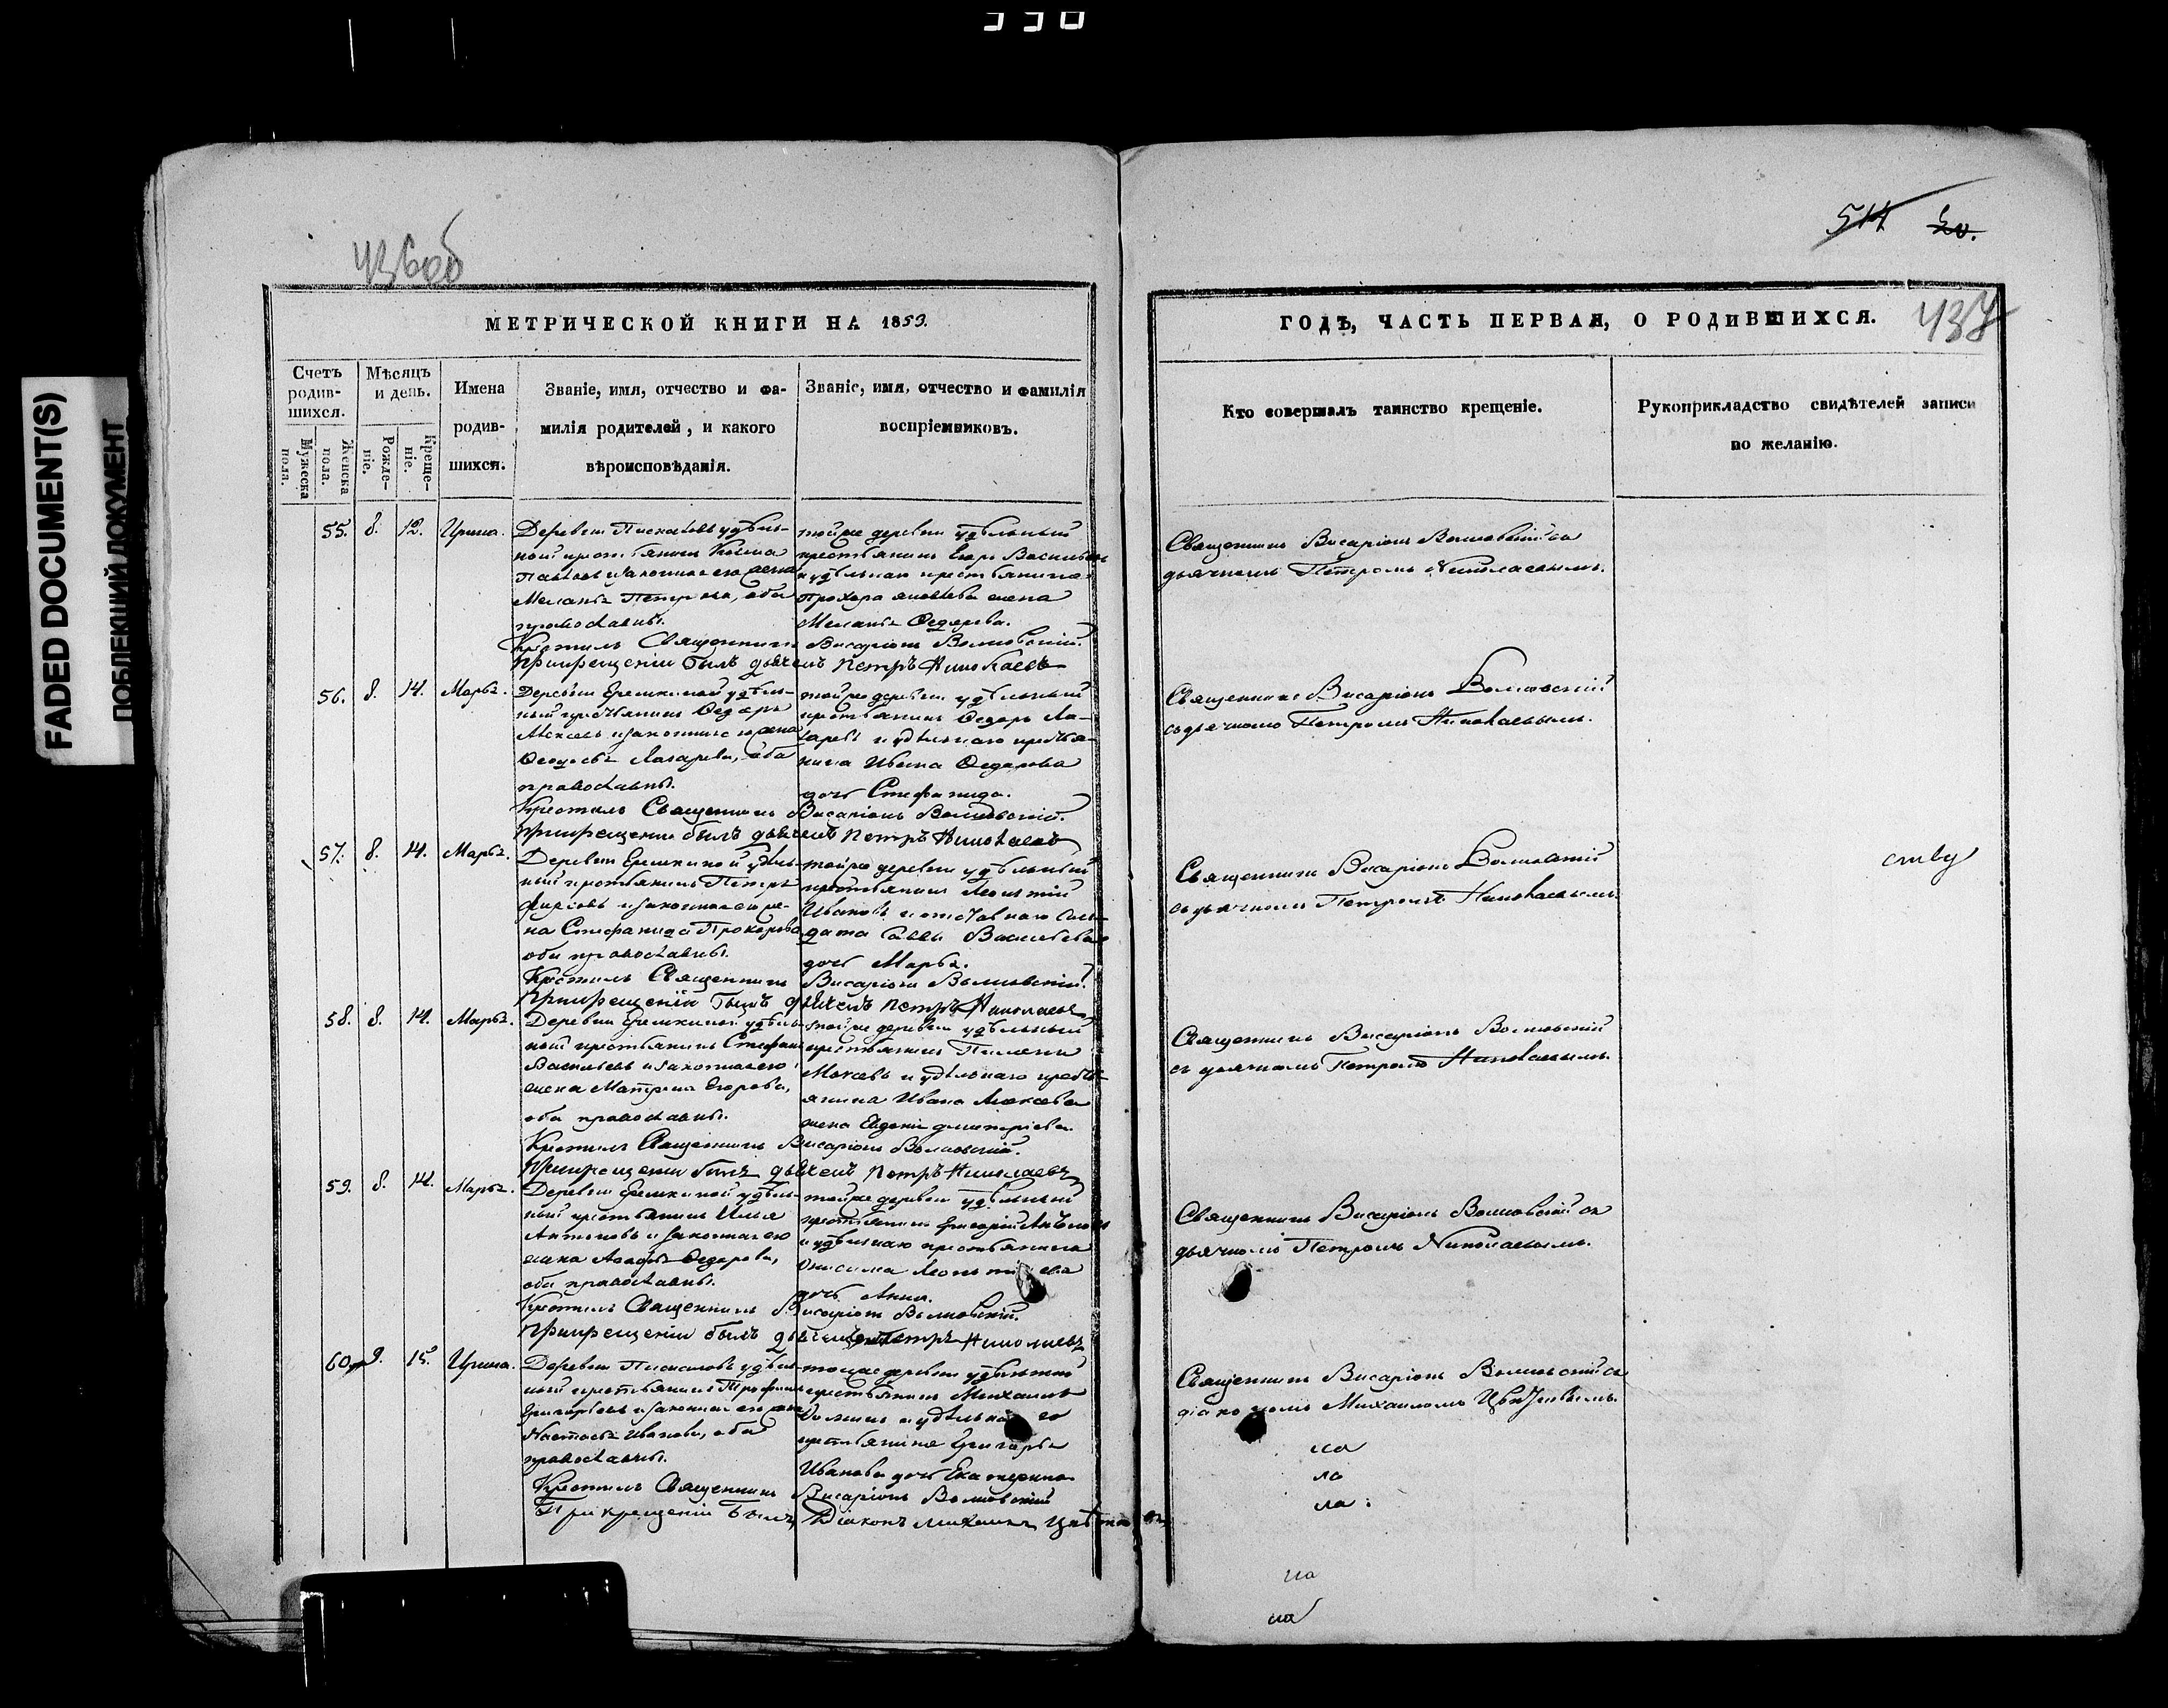 436об
МЕТРИЧЕСКОЙ КНИГИ НА 1853.
Счетъ родив-шихся.
Мужеска пола.
Женска пола.
Мѣсяцъ и день.
Рожде-ніе.
Креще-ніе.
Имена родив-шихся.
Званіе, имя, отчество и фа-
милія родителей, и какого
вѣроисповѣданія.
Званіе, имя, отчество и фамилія
воспріемниковъ.
55. 8. 12. Ирина.
Деревни удѣль-
ный крестьянинъ Козма
Павловъ и законная его жена
Меланья Петрова, оба
православны.
тойже деревни удѣльный
крестьянинъ Егоръ Васильевъ
и удѣльнаго крестьянина
Прохора Яковлева жена
Меланья Ѳедорова.
Крестилъ Священникъ Висаріонъ Волковскій.
При крещеніи былъ дьячекъ Петръ Николаевъ
56. 8. 14. Марья.
Деревни Ерешкиной удѣль-
ный крестьянинъ Ѳедоръ
и законная его жена
Ѳеодосья Лазарева, оба
православны.
тойже деревни удѣльный
крестьянинъ Ѳедоръ Ла-
заревъ и удѣльнаго крестья-
нина Ивана Ѳедорова
дочь Стефанида.
Крестилъ Священникъ Висаріонъ Волковскій.
При крещеніи былъ дьячекъ Петръ Николаевъ
57. 8. 14. Марья.
Деревни Ерешкиной удѣль-
ный крестьянинъ Петръ
Фирсовъ и законная его же-
на Стефанида Прохорова,
оба православны.
тойже деревни удѣльный
крестьянинъ Леонтій
Ивановъ и отставнаго сол-
дата Саввы Васильева
дочь Марья.
Крестилъ Священникъ Висаріонъ Волковскій.
При крещеніи былъ дьячекъ Петръ Николаевъ
58. 8. 14. Марья.
Деревни Ерешкиной удѣль-
ный крестьянинъ Стефанъ
Васильевъ и законная его
жена Матрена Егорова,
оба православны.
тойже деревни удѣльный
крестьянинъ
и удѣльнаго кресть-
янина Ивана Алексева
жена Евдокія Димитріева.
Крестилъ Священникъ Висаріонъ Волковскій.
При крещеніи былъ дьячекъ Петръ Николаевъ
59. 8. 14. Марья.
Деревни Ерешкиной удѣль-
ный крестьянинъ Илья
Антоновъ и законная его
жена Агафья Ѳедорова,
оба православны.
тойже деревни удѣльный
крестьянинъ Григорій
и удѣльнаго крестьянина
Онисима Леонтьева
дочь Анна.
Крестилъ Священникъ Висаріонъ Волковскій.
При крещеніи былъ дьячекъ Петръ Николаевъ
60. 9. 15. Ирина.
Деревни удѣль-
ный крестьянинъ Трофимъ
Григорьевъ и законная его жена
Настасья Иванова, оба
православны.
тойже деревни удѣльный
крестьянинъ Михаилъ
и удѣльнаго
крестьянина Григорья
Иванова дочь Екатерина
Крестилъ Священникъ Висаріонъ Волковскій
При крещеніи былъ Діаконъ Михаилъ Цвѣтковъ
514 50.
437
ГОДЪ, ЧАСТЬ ПЕРВАЯ, О РОДИВШИХСЯ.
Кто совершалъ таинство крещеніе.
Рукоприкладство свидѣтелей записи
по желанію.
Священникъ Висаріонъ Волковскій съ
дьячкомъ Петромъ Николаевымъ.
Священникъ Висаріонъ Волковскій
съ дьячкомъ Петромъ Николаевымъ.
Священникъ Висаріонъ Волковскій
съ дьячкомъ Петромъ Николаевымъ.
Священникъ Висаріонъ Волковскій
съ дьячкомъ Петромъ Николаевымъ.
Священникъ Висаріонъ Волковскій съ
дьячкомъ Петромъ Николаевымъ.
Священникъ Висаріонъ Волковскій съ
діакономъ Михаиломъ Цвѣтковымъ.
FADED DOCUMENT(S)
ПОБЛЕКШИЙ ДОКУМЕНТ